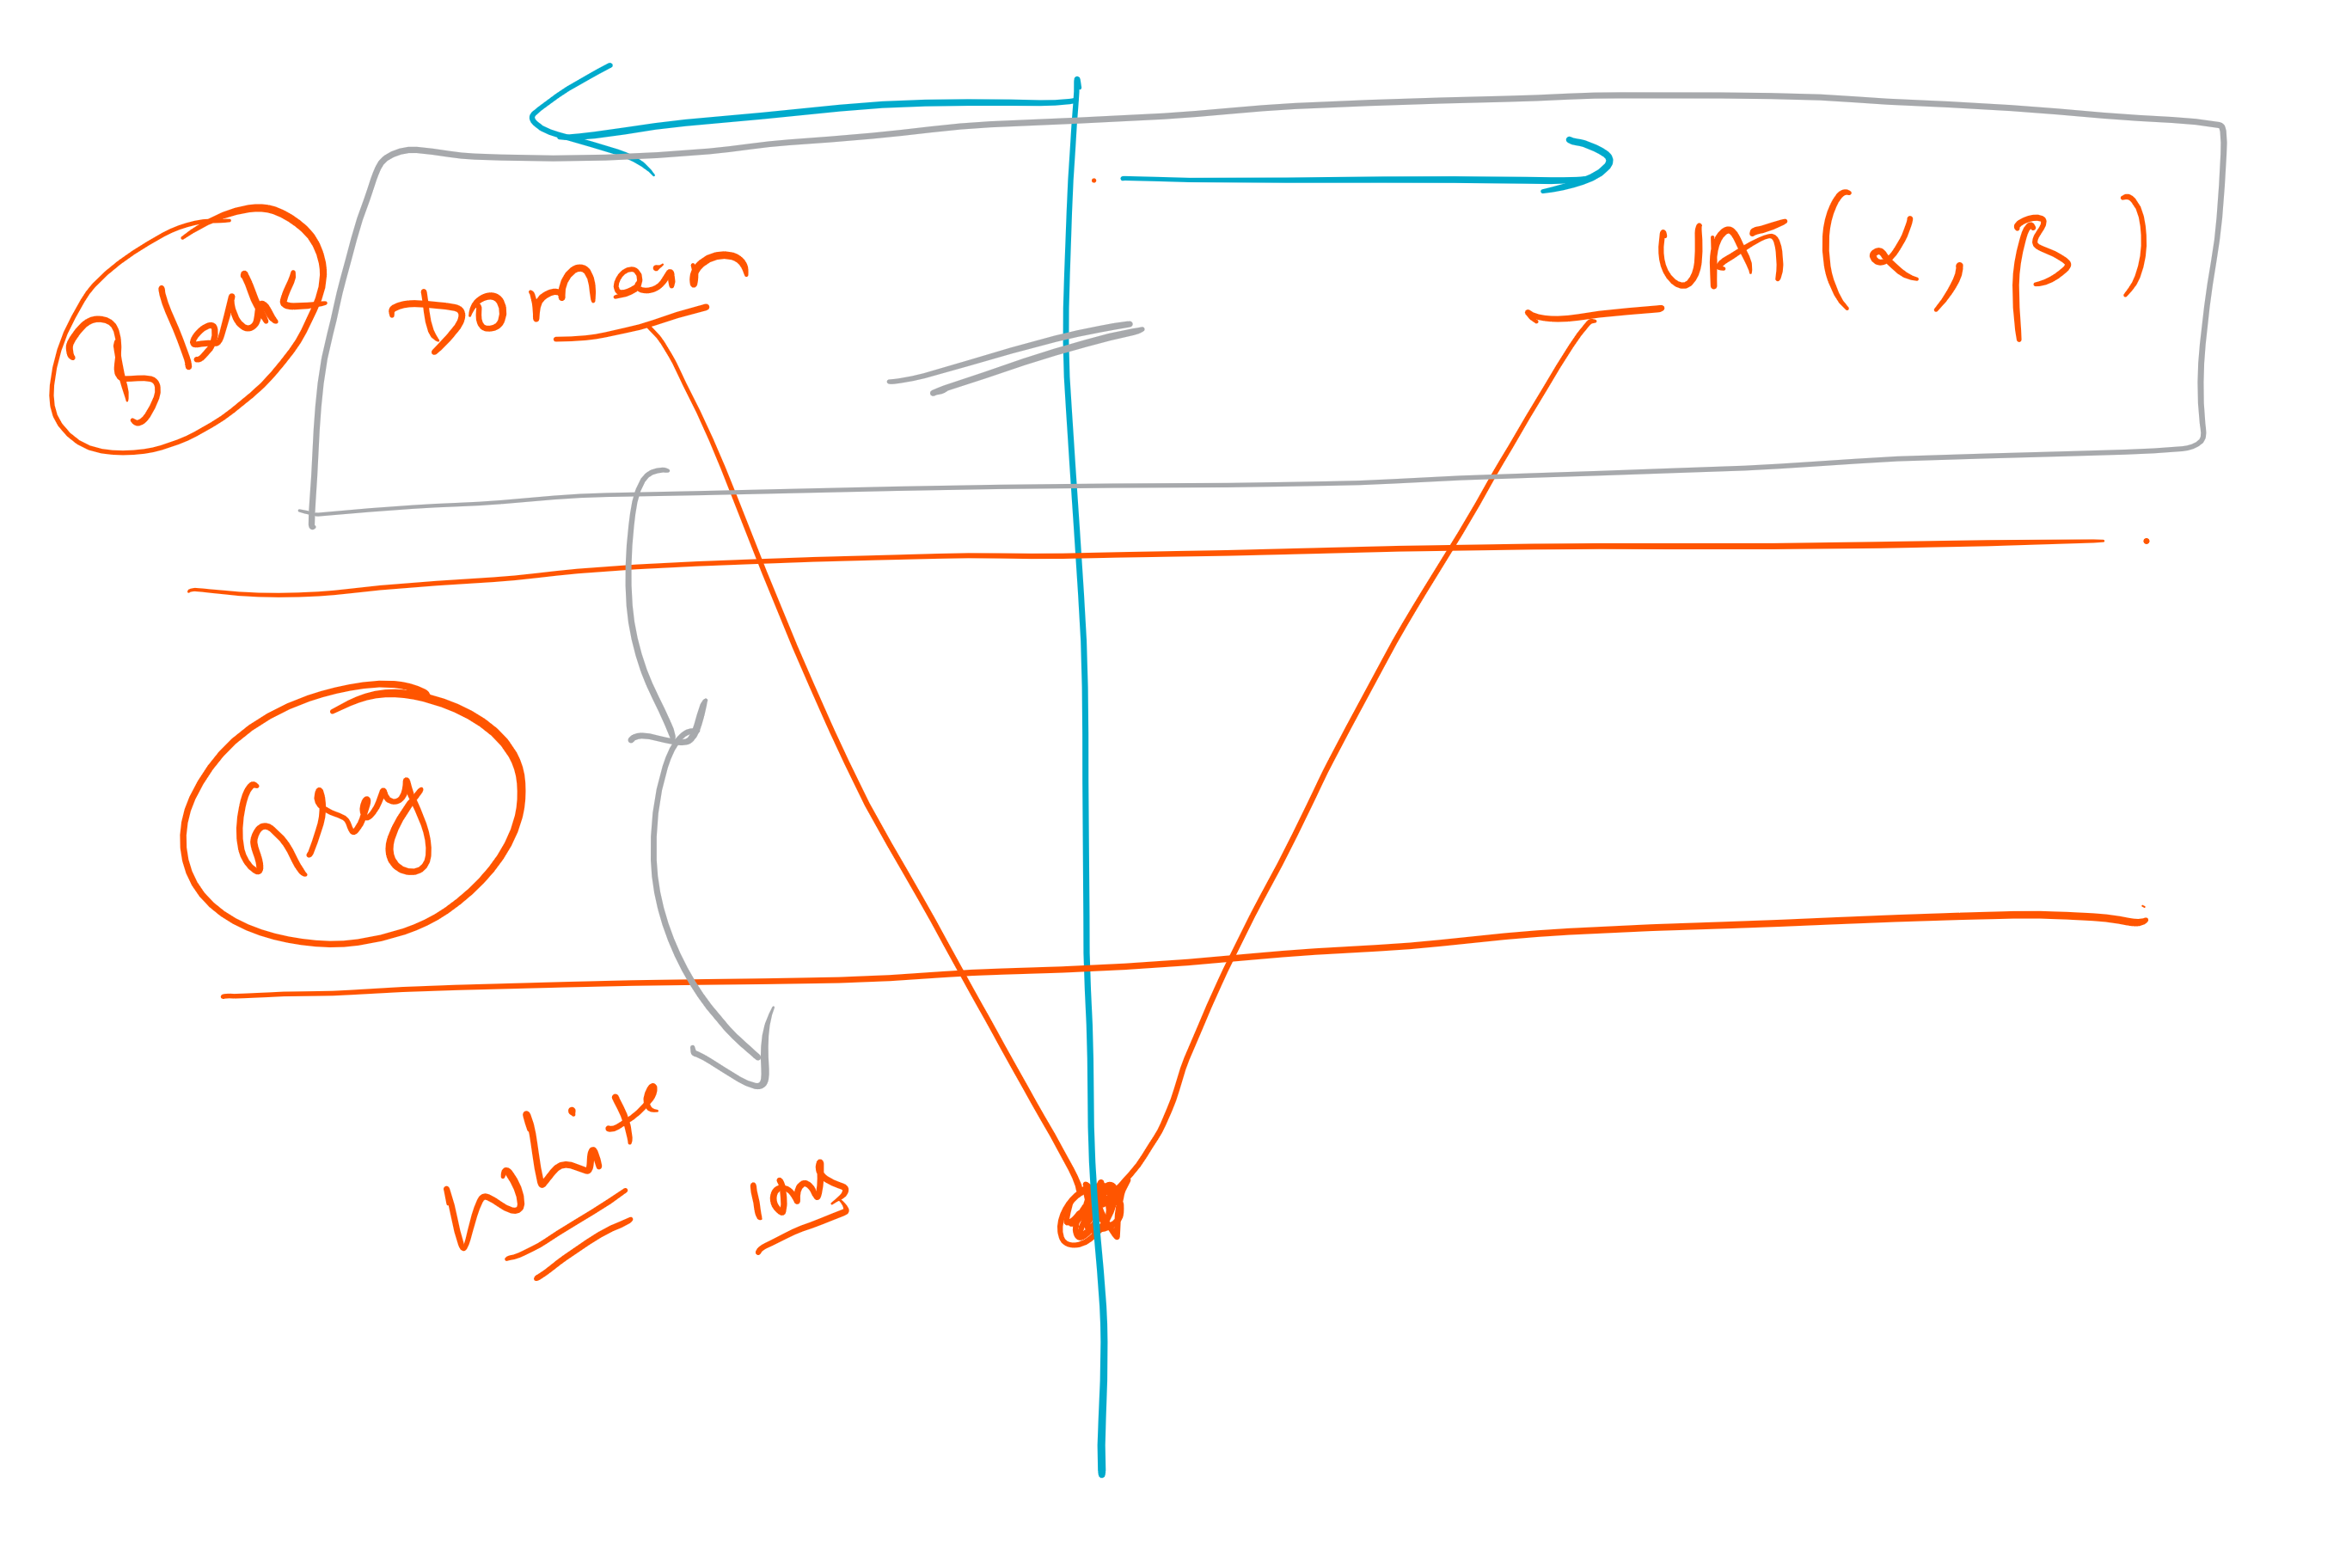 Black
Domain
UAT (α, β)
Grey
White